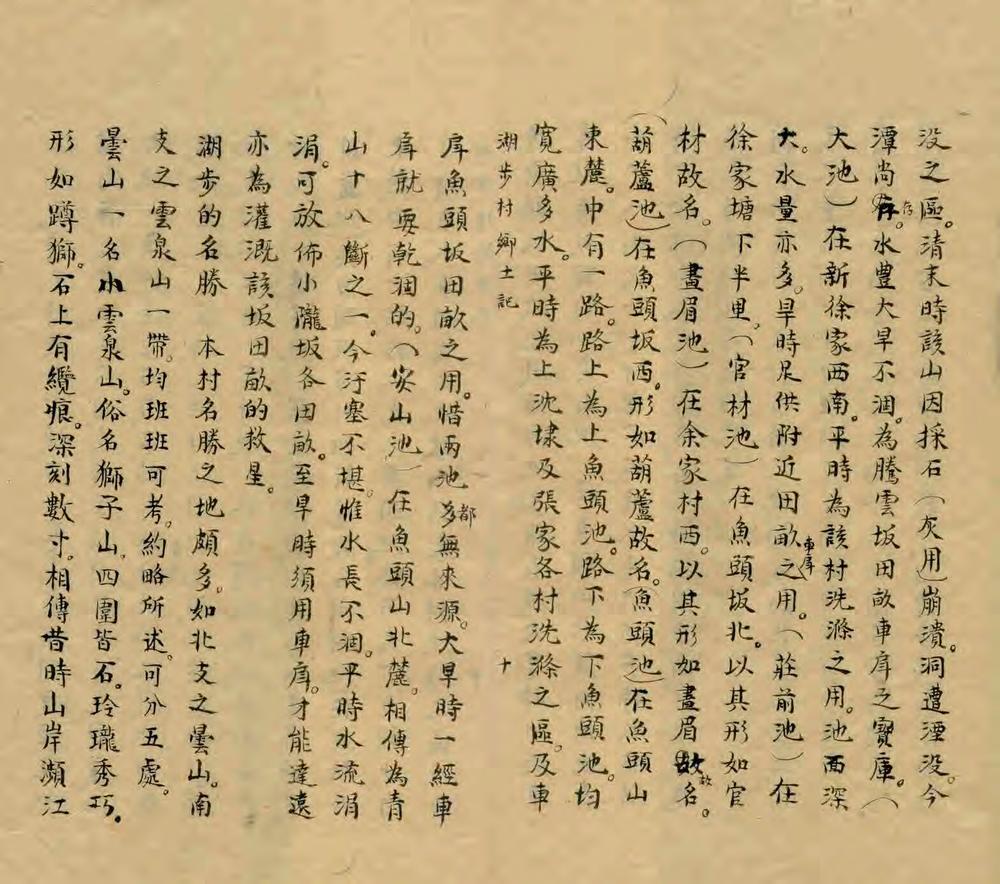 没之區。清末時該山因採石（灰用）崩潰。洞遭湮没。今
潭尚存。水豊大旱不涸。為騰雲坂田畝車戽之寶庫。（
大池）在新徐家西南。平時為該村洗滌之用。池西深
大。水量亦多。旱時足供附近田畝車戽之用。（莊前池）在
徐家塘下半里。（官材池）在魚頭坂北。以其形如官
材故名。（畫眉池）在余家村西。以其形如畫眉故名。
（葫蘆池）在魚頭坂西。形如葫蘆故名。（魚頭池）在魚頭山
東麓。中有一路。路上為上魚頭池。路下為下魚頭池。均
寬廣多水。平時為上沈埭及張家各村洗滌之區。及車
湖步村鄉土記 十
戽魚頭坂田畝之用。惜兩池都無來源。大旱時一經車
戽就要乾涸的。（安山池）在魚頭山北麓。相傳為青
山十八斷之一。今汙塞不堪。惟水長不涸。平時水流涓
涓。可放佈小隴坂各田畝。至旱時須用車戽。才能達遠
亦為灌溉該坂田畝的救星。
湖步的名勝 本村名勝之地頗多。如北支之曇山。南
支之雲泉山一帶。均班班可考。約略所述。可分五處。
曇山一名小雲泉山。俗名獅子山，四圍皆石。玲瓏秀巧。
形如蹲獅。石上有纜痕。深刻數寸。相傳昔時山岸瀕江